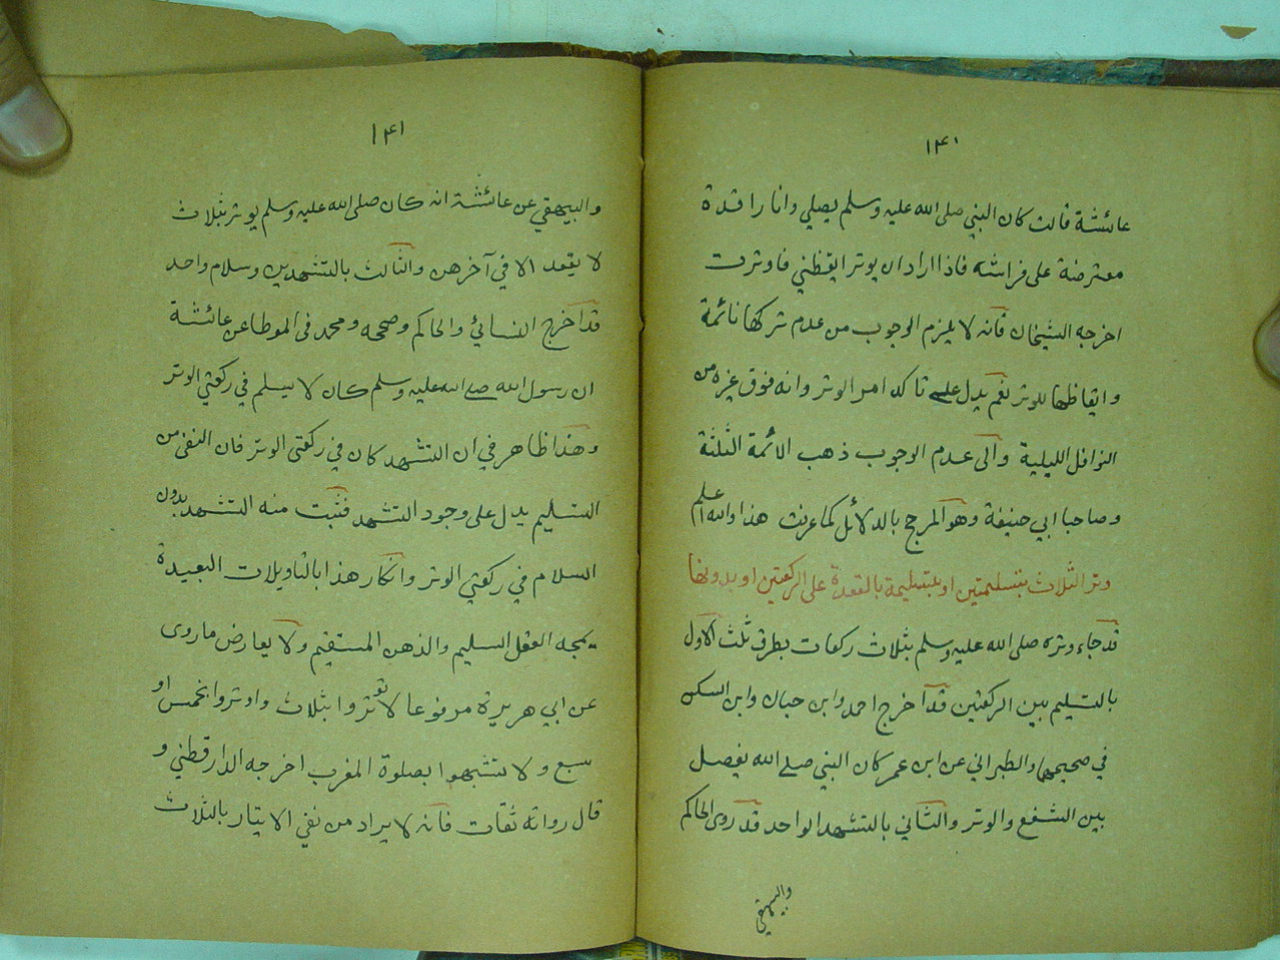 ١٤٠
عائشة قالت كان النبي صلى الله عليه وسلم يصلي وانا راقدة
معترضة على فراشه فاذا اراد ان يوتر ايقظني فاوترت
اخرجه الشيخان فانه لا يلزم الوجوب من عدم تركها نائمة
وايقاظها للوتر نعم يدل على تاكد امر الوتر وانه فوق غيره من
النوافل الليلية والى عدم الوجوب ذهب الائمة الثلثة
وصاحبا ابي حنيفة وهو المرجح بالدلائل كما عرفت هذا والله اعلم
وتر الثلاث بتسليمتين او بتسليمة بالقعدة على الركعتين او بدونها
قد جاء وتره صلى الله عليه وسلم بثلاث ركعات بطرق ثلث الاول
بالتسليم بين الركعتين قد اخرج احمد وابن حبان وابن السكن
في صحيحهما والطبراني عن ابن عمر كان النبي صلى الله يفصل
بين الشفع والوتر والثاني بالتشهد الواحد قد روى الحاكم
والبيهقي
١٤١
والبيهقي عن عائشة انه كان صلى الله عليه وسلم يوتر بثلاث
لا يقعد الا في آخرهن والثالث بالتشهدين وسلام واحد
قد اخرج النسائي والحاكم وصححه ومحمد في الموطا عن عائشة
ان رسول الله صلى الله عليه وسلم كان لا يسلم في ركعتي الوتر
وهذا ظاهر في ان التشهد كان في ركعتي الوتر فان النفي من
التسليم يدل على وجود التشهد فثبت منه التشهد بدون
السلام في ركعتي الوتر وانكار هذا بالتاويلات البعيدة
يمجه العقل السليم والذهن المستقيم ولا يعارض ما روى
عن ابي هريرة مرفوعا لا توتروا بثلاث واوتروا بخمس او
سبع ولا تشبهوا بصلوة المغرب اخرجه الدارقطني و
قال رواته ثقات فانه لا يراد من نفي الايتار بالثلاث